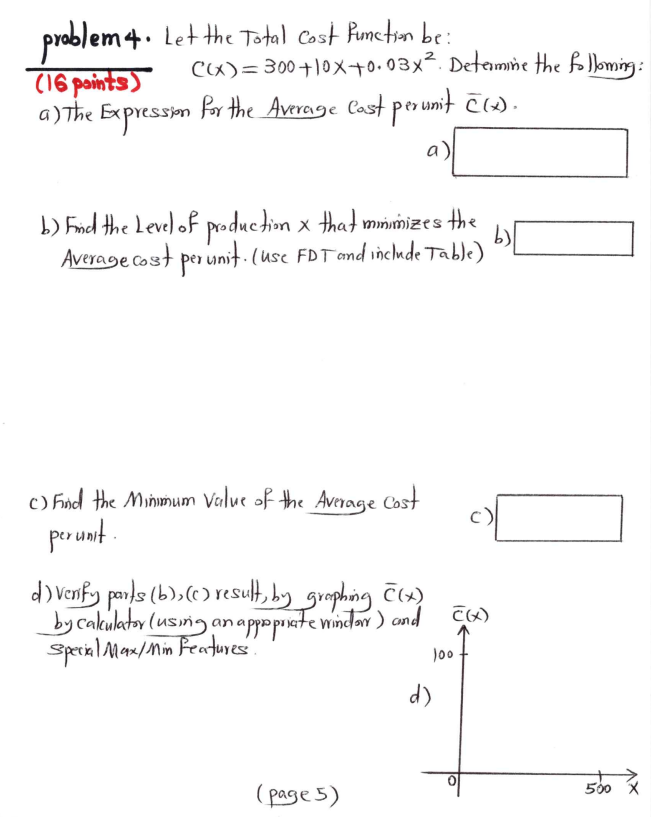 problem 4. Let the Total Cost Function be:
(16 points) C(x) = 300 + 10x + 0.03x². Determine the following:
a) The Expression for the Average Cost per unit C̄(x).
a)
b) Find the Level of production x that minimizes the
Average cost per unit. (use FDT and include Table)
b)
c) Find the Minimum Value of the Average Cost
per unit.
c)
d) Verify parts (b), (c) result, by graphing C̄(x)
by calculator (using an appropriate window) and
special Max/Min Features.
C̄(x)
100
d)
0
500 x
(page 5)